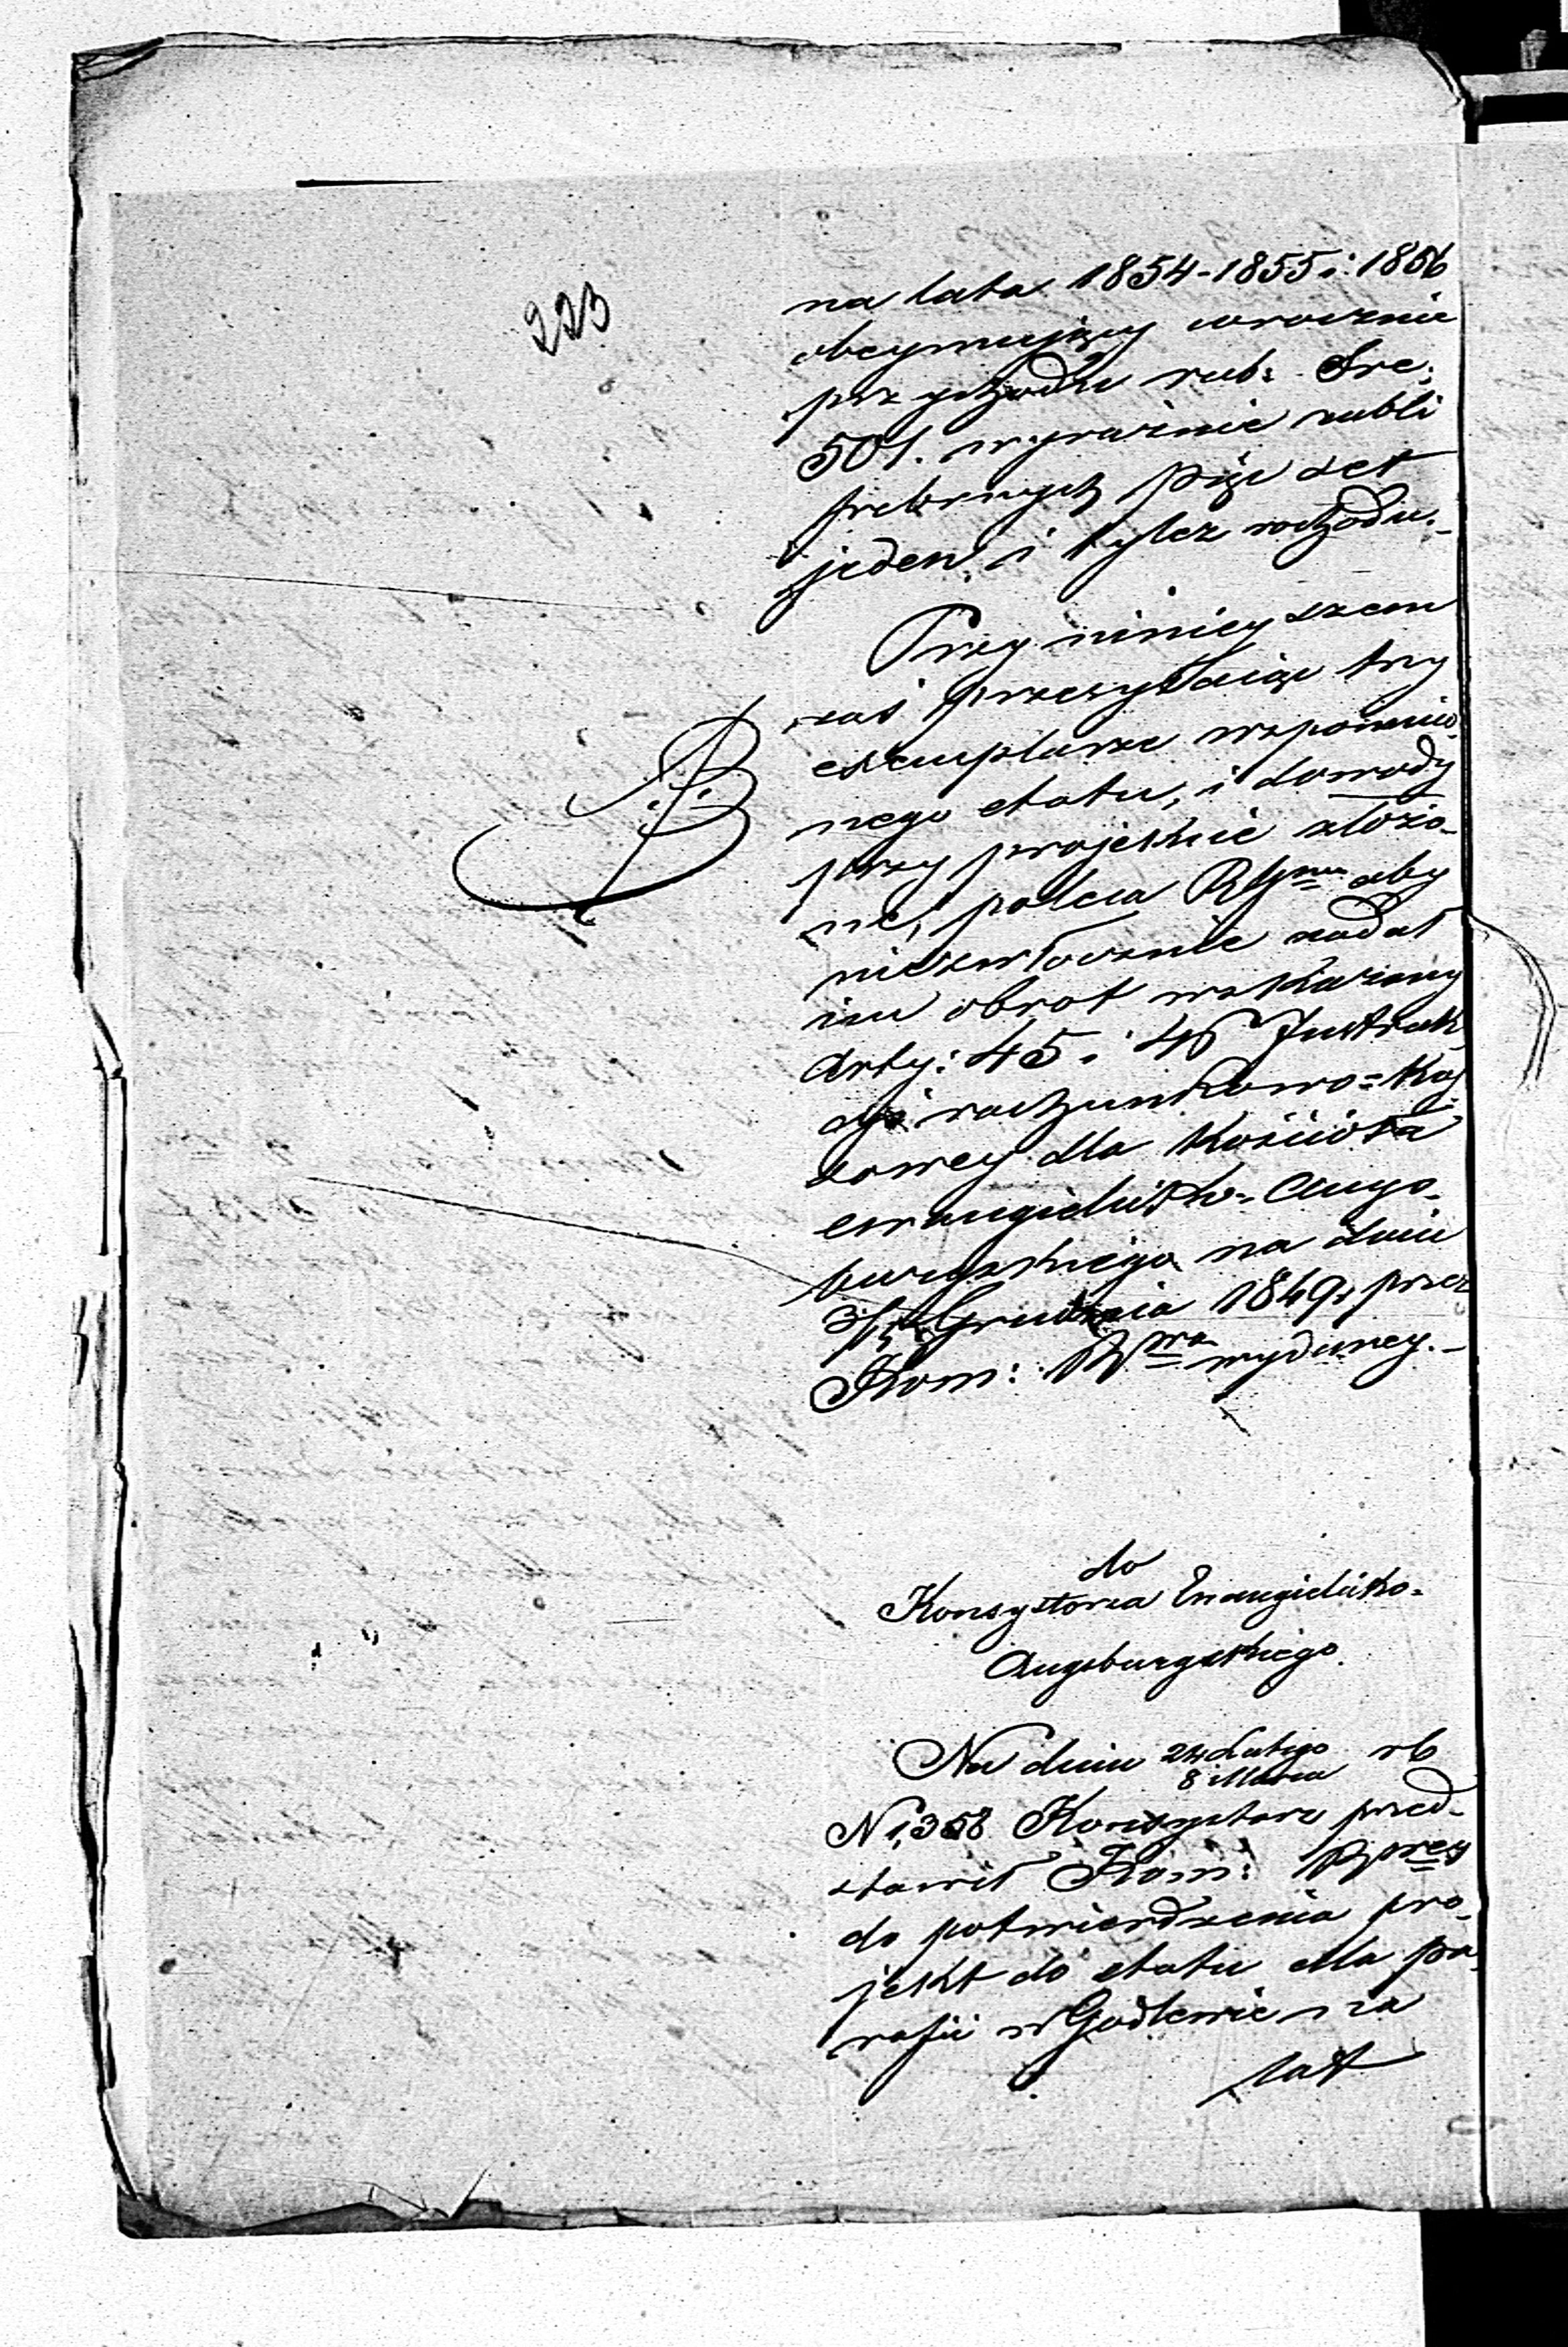 223
na lata 1854-1855 i 1856
obeymujący corocznie
przychodu rub: Sre:
501. wyraźnie rubli
srebrnych pięc set
jeden i tylez rozchodu.-
Przy nineyszem
zaś przesyłaiąc trzy
exemplarze wspomnio-
nego etatu, i dowody
przy projekcie złożo-
ne, poleca
aby
niezwłocznie nadał
im obrot wskazany
Arty: 45 i 46 Instruk-
cyi rachunkowo=Kas-
sowey dla Kościoła
ewangielicko=Augs-
burgskiego na dniu
3/15 Grudnia 1849 r. przez
Kom: wydaney.-
do
Konsystorza Ewangielicko=
Augsburgskiego.
Na dniu 24 Lutego rb
8 Marca
N 1,358 Konsystorz przed-
stawił Kom:
do potwierdzenia pro-
jekt do etatu dla pa-
rafii w Godlewie na
lat